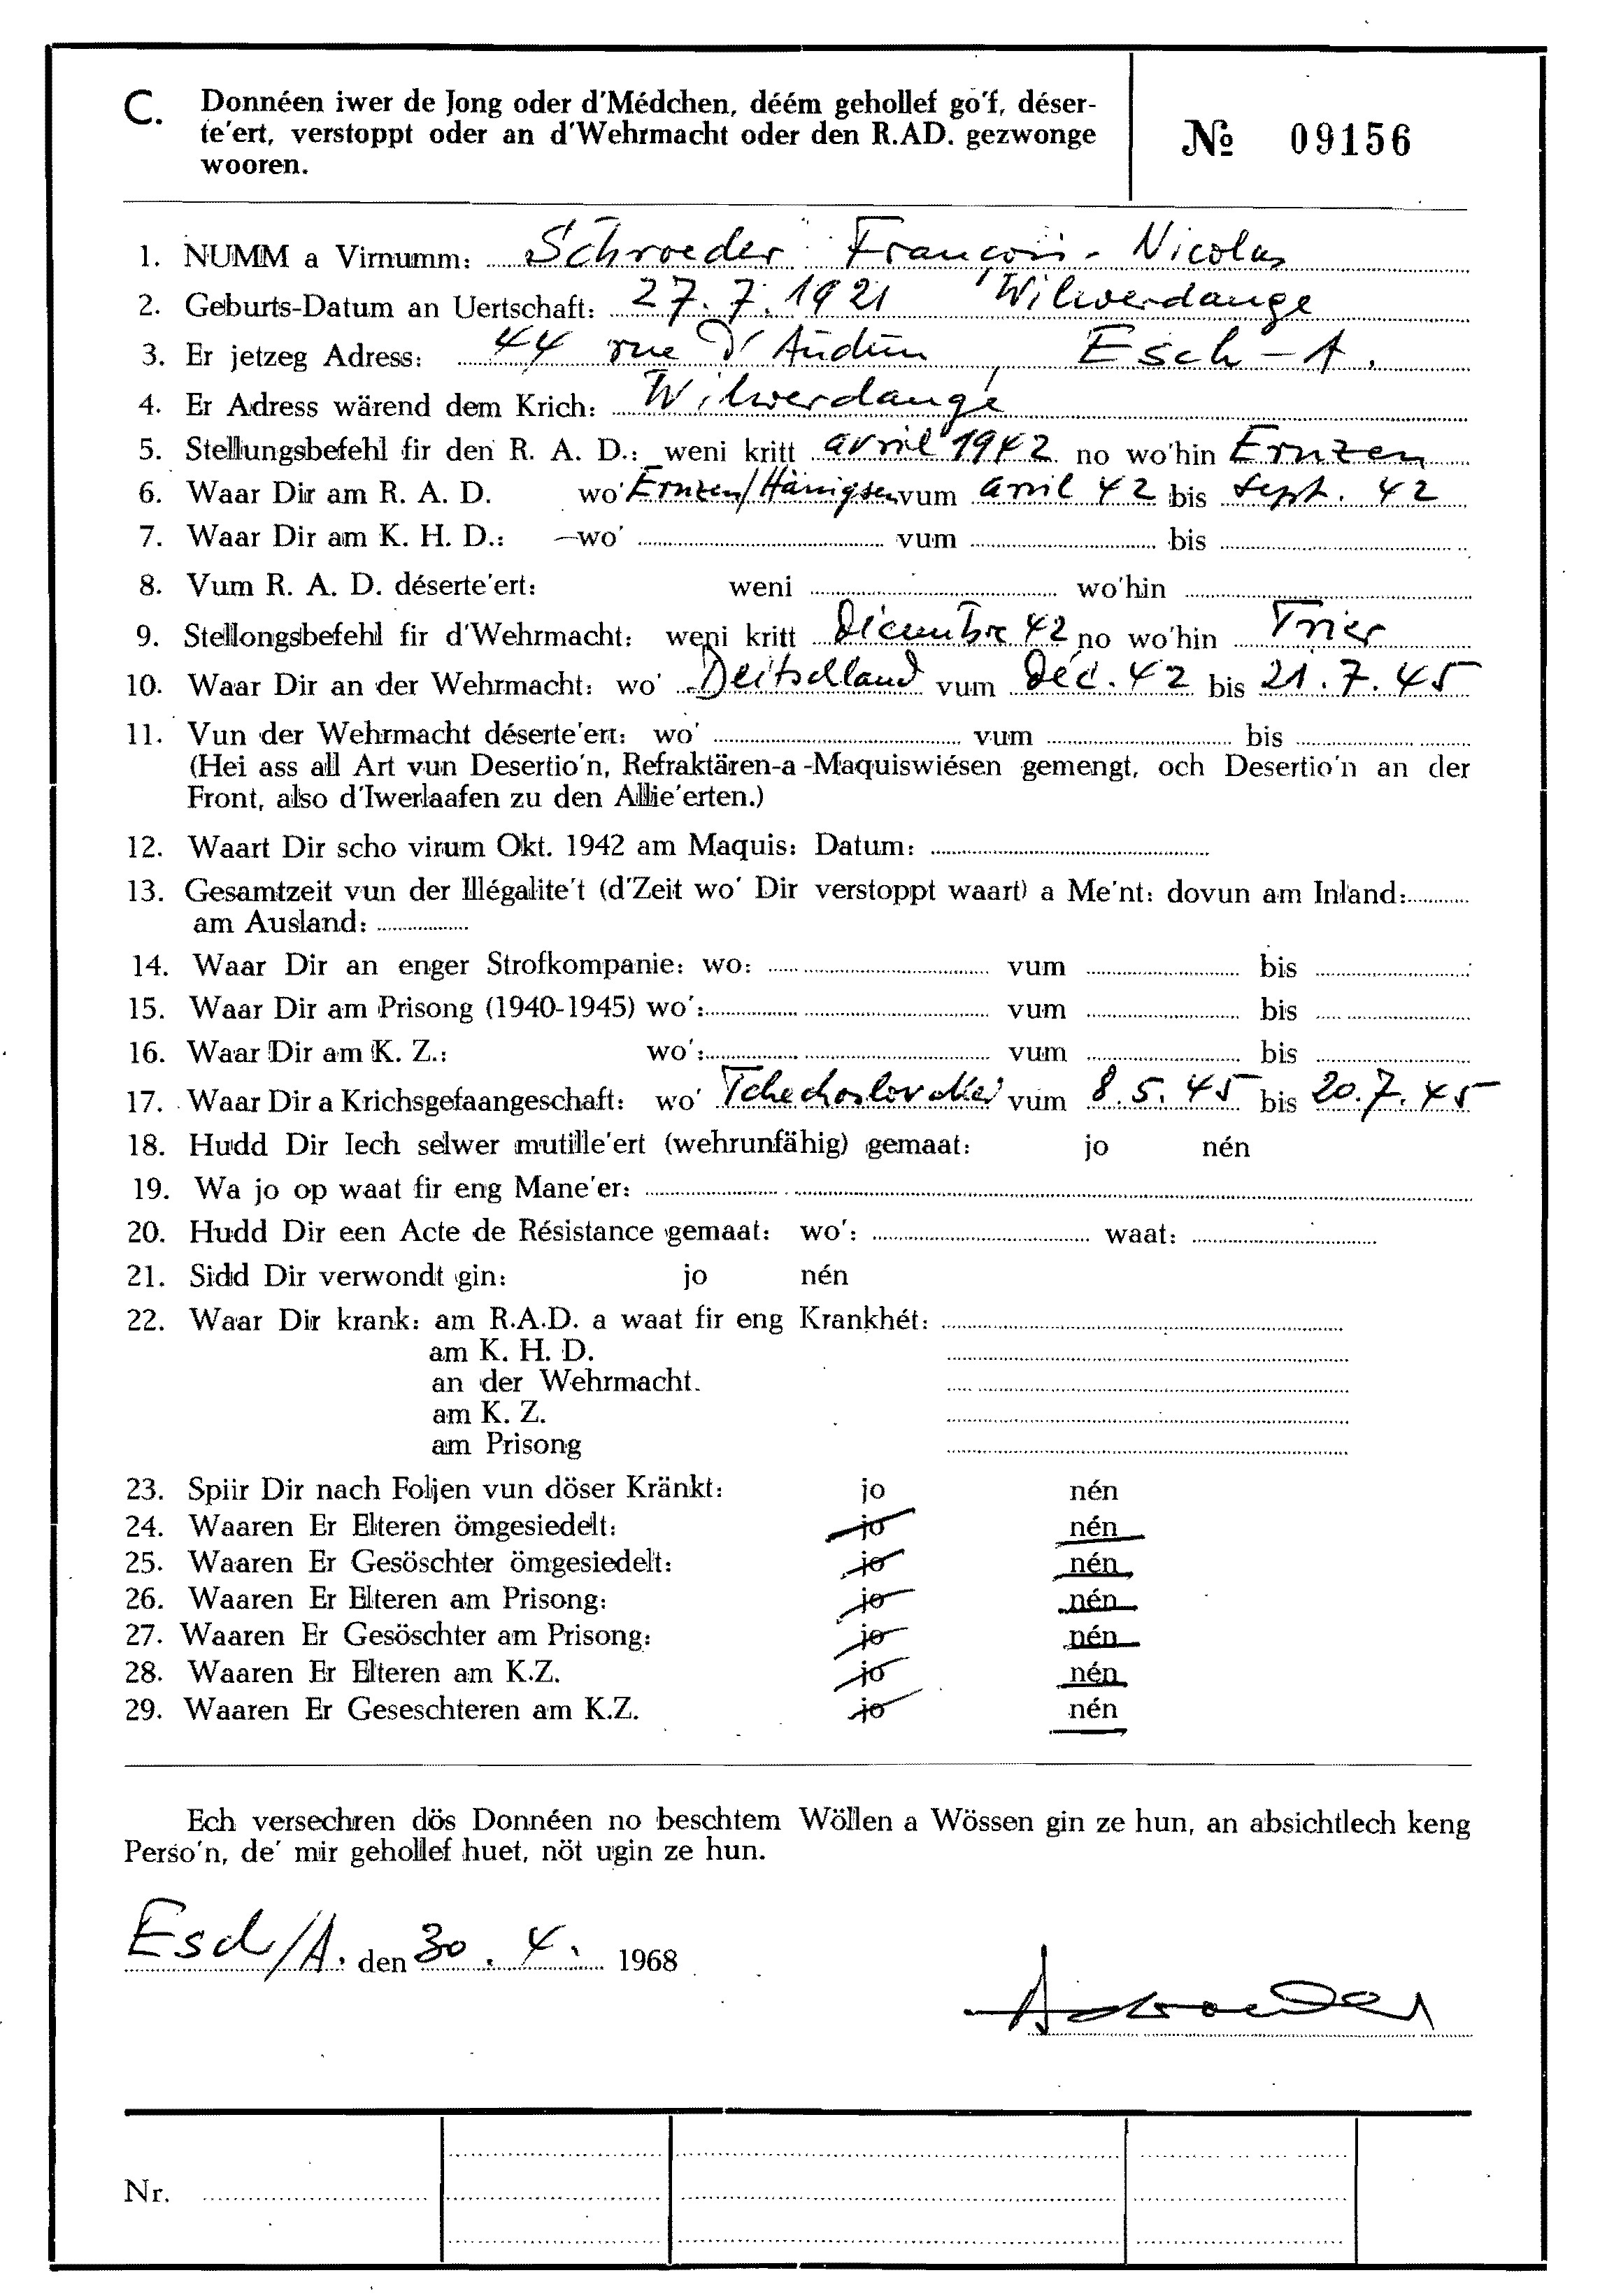 C. Donnéen iwer de Jong oder d'Médchen, déém gehollef go'f, déser-
te'ert, verstoppt oder an d'Wehrmacht oder den R.AD. gezwonge
wooren.
№ 09156
1. NUMM a Virnumm: Schroeder François-Nicolas
2. Geburts-Datum an Uertschaft: 27.7.1921 Wilwerdange
3. Er jetzeg Adress: 44 rue d'Audun Esch-A.
4. Er Adress wärend dem Krich: Wilwerdange
5. Stellungsbefehl fir den R. A. D.: weni kritt avril 1942 no wo'hin Ernzen
6. Waar Dir am R. A. D. wo' Ernzen/Hänigsen vum avril 42 bis sept. 42
7. Waar Dir am K. H. D.: wo' vum bis
8. Vum R. A. D. déserte'ert: weni wo'hin
9. Stellongsbefehl fir d'Wehrmacht: weni kritt Décembre 42 no wo'hin Trier
10. Waar Dir an der Wehrmacht: wo' Deitschland vum Déc. 42 bis 21.7.45
11. Vun der Wehrmacht déserte'ert: wo' vum bis
(Hei ass all Art vun Desertio'n, Refraktären-a-Maquiswiésen gemengt, och Desertio'n an der
Front, also d'Iwerlaafen zu den Allie'erten.)
12. Waart Dir scho virum Okt. 1942 am Maquis: Datum:
13. Gesamtzeit vun der Illégalite't (d'Zeit wo' Dir verstoppt waart) a Me'nt: dovun am Inland:
am Ausland:
14. Waar Dir an enger Strofkompanie: wo: vum bis
15. Waar Dir am Prisong (1940-1945) wo': vum bis
16. Waar Dir am K. Z.: wo': vum bis
17. Waar Dir a Krichsgefaangeschaft: wo' Tchechoslovakei vum 8.5.45 bis 20.7.45
18. Hudd Dir Iech selwer mutille'ert (wehrunfähig) gemaat: jo nén
19. Wa jo op waat fir eng Mane'er:
20. Hudd Dir een Acte de Résistance gemaat: wo': waat:
21. Sidd Dir verwondt gin: jo nén
22. Waar Dir krank: am R.A.D. a waat fir eng Krankhét:
am K. H. D.
an der Wehrmacht.
am K. Z.
am Prisong
23. Spiir Dir nach Foljen vun döser Kränkt: jo nén
24. Waaren Er Elteren ömgesiedelt: jo nén
25. Waaren Er Gesöschter ömgesiedelt: jo nén
26. Waaren Er Elteren am Prisong: jo nén
27. Waaren Er Gesöschter am Prisong: jo nén
28. Waaren Er Elteren am K.Z. jo nén
29. Waaren Er Geseschteren am K.Z. jo nén
Ech versechren dös Donnéen no beschtem Wöllen a Wössen gin ze hun, an absichtlech keng
Perso'n, de' mir gehollef huet, nöt ugin ze hun.
Esch/A. den 30.4. 1968
Schroeder
Nr.